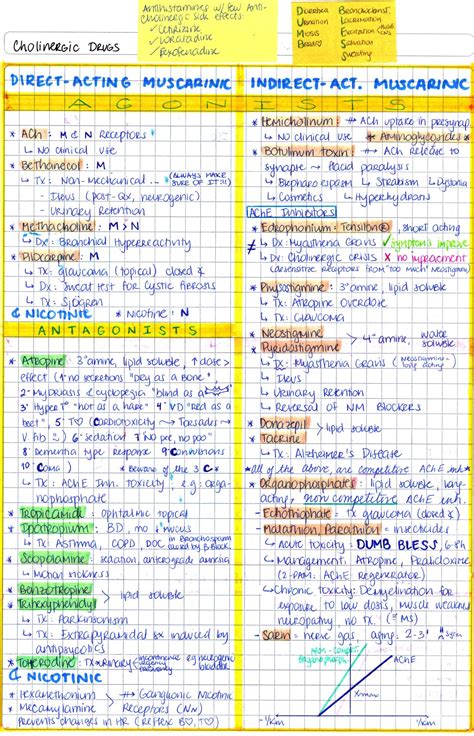 Antihistamines w/ few Anti-
Cholinergic side effects:
✓ Cetirizine
✓ Loratadine
✓ Fexofenadine
Diarrhea
Urination
Miosis
Bronchoconst.
Lacrimation
Excitation
Salivation
Sweating
Cholinergic Drugs
DIRECT-ACTING MUSCARINIC
INDIRECT-ACT. MUSCARINIC
AGONISTS
* ACh: M & N Receptors
↳ No clinical use
* Bethanecol: M
↳ Tx: Non-Mechanical... (ALWAYS MAKE SURE OF IT!!!)
- Ileus (post-Qx, neurogenic)
- Urinary Retention
* Methacholine: M > N
↳ Dx: Bronchial Hyperreactivity
* Pilocarpine: M
↳ Tx: glaucoma (topical) closed ∢
↳ Dx: Sweat test for Cystic Fibrosis
↳ Tx: Sjögren
& NICOTINIC * Nicotine: N
ANTAGONISTS
* Atropine: 3° amine, lipid soluble, ↑ dose >
effect (1° no secretions "Dry as a Bone"
2° Mydriasis & cyclopegia "blind as a
3° HyperT° "hot as a hare" 4° VD "Red as a
beet", 5° T♡ (Cardiotoxicity → Torsades →
V. Fib 2) 6° sedation 7° No pee, no poo"
8° Dementia type response 9° Convulsions
10° Coma) * Beware of the 3 C*
↳ Tx: AChE Inh. toxicity, e.g: orga-
nophosphate
* Tropicamide: Ophtalmic topical
* Ipatropium: BD, no ↓ mucus
↳ Tx: Asthma, COPD, DOC in Bronchospasm caused by B. Block.
* Scopolamine: sedation, anterograde amnesia
↳ Motion sickness
* Benzotropine
* Trihexyphenidyl > lipid soluble
↳ Tx: Parkinsonism
↳ Tx: Extrapyramidal Sx induced by
antipsycotics
* Tolterodine: Tx urinary incontinence urgency frequency e.g neurogenic bladder
& NICOTINIC
* Hexamethonium
* Mecamylamine > Ganglionic Nicotinic Receptors (NN)
prevents changes in HR (Reflex B♡, T♡)
* Hemicholinum: ACh uptake in presynap.
↳ No clinical use * Aminoglycosides *
* Botulinum toxin: ACh release to
synapse → Flacid paralysis
↳ Blepharospasm ↳ Strabism ↳ Dystonia
↳ Cosmetics ↳ Hyperhydrosis
AChE Inhibitors
* Edrophontum: Tensilon®, short acting
≠ ↳ Dx: Myasthenia Gravis ✓ symptoms improve
↳ Dx: Cholinergic Crisis ✗ no improvement
* Physostigmine: 3° amine, lipid soluble
↳ Tx: Atropine Overdose
↳ Tx: Glaucoma
* Neostigmine
* Pyridostigmine > 4° amine, water soluble
↳ Tx: Myasthenia Gravis
↳ Ileus
↳ Urinary Retention
↳ Reversal of NM Blockers
* Donazepil
* Tacrine > lipid soluble
↳ Tx: Alzheimer's Disease
* All of the above, are competitive AChE inh. *
* Organophosphates: lipid soluble, long-
acting, non competitive AChE inh.
* Echothiophate: Tx glaucoma (closed ∢)
* Malathion, Parathion = insecticides
↳ Acute toxicity: DUMB BLESS, 6-8h
↳ Management: Atropine, Pralidoxime
(2-PAM: AChE regenerator)
↳ Chronic toxicity: Demyelination for
exposure to low dosis, muscle weakness
neuropathy, no tx. (≅ MS)
- Sarin = nerve gas, aging: 2-3"
Non-Compet.
Organophosph.
AChE
-1/km
1/km